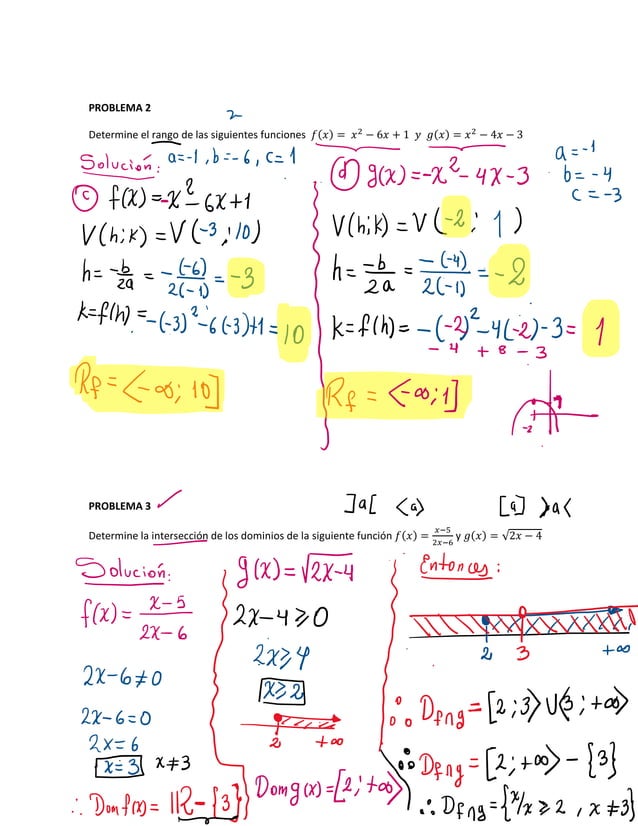 PROBLEMA 2
Determine el rango de las siguientes funciones f(x) = x² − 6x + 1 y g(x) = x² − 4x − 3
Solución: a=-1, b=-6, c=1
c) f(x)=-x²-6x+1
V(h;k)=V(-3;10)
h= -b/2a = -(-6)/2(-1) = -3
k=f(h)=-(-3)²-6(-3)+1=10
Rf=<-∞;10]
a=-1
b=-4
c=-3
d) g(x)=-x²-4x-3
V(h;k)=V(-2; 1)
h= -b/2a = -(-4)/2(-1) = -2
k=f(h)=-(-2)²-4(-2)-3= 1
-4+8-3
Rf=<-∞;1]
-2
PROBLEMA 3
]a[ <a> [a] >a<
Determine la intersección de los dominios de la siguiente función f(x) = x−5/2x−6 y g(x) = √2x − 4
Solución:
f(x)= x-5/2x-6
2x-6≠0
2x-6=0
2x=6
x=3 x≠3
∴ Dom f(x)= IR-{3}
g(x)=√2x-4
2x-4≥0
2x≥4
x≥2
2 +∞
Dom g(x)=[2;+∞>
Entonces:
2 3 +∞
∴ Df∩g=[2;3>U<3;+∞>
∴ Df∩g=[2;+∞>-{3}
∴ Df∩g={x/x≥2, x≠3}